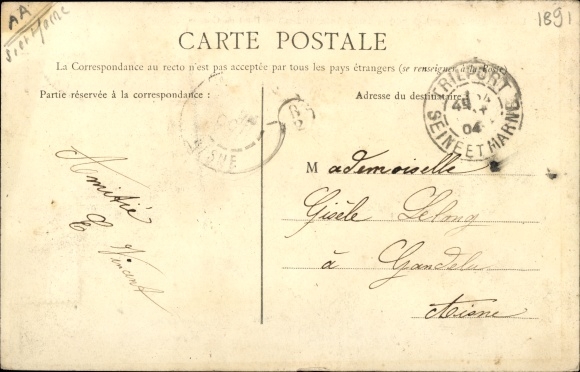 AA
1891
CARTE POSTALE
La Correspondance au recto n'est pas acceptée par tous les pays étrangers (se renseigner à la Poste)
Partie réservée à la correspondance :
Adresse du destinataire
TRILPORT
04
SEINE ET MARNE
AISNE
Amitié
E Vincent
Mademoiselle
Gisèle Lelong
à Gandelu
Aisne